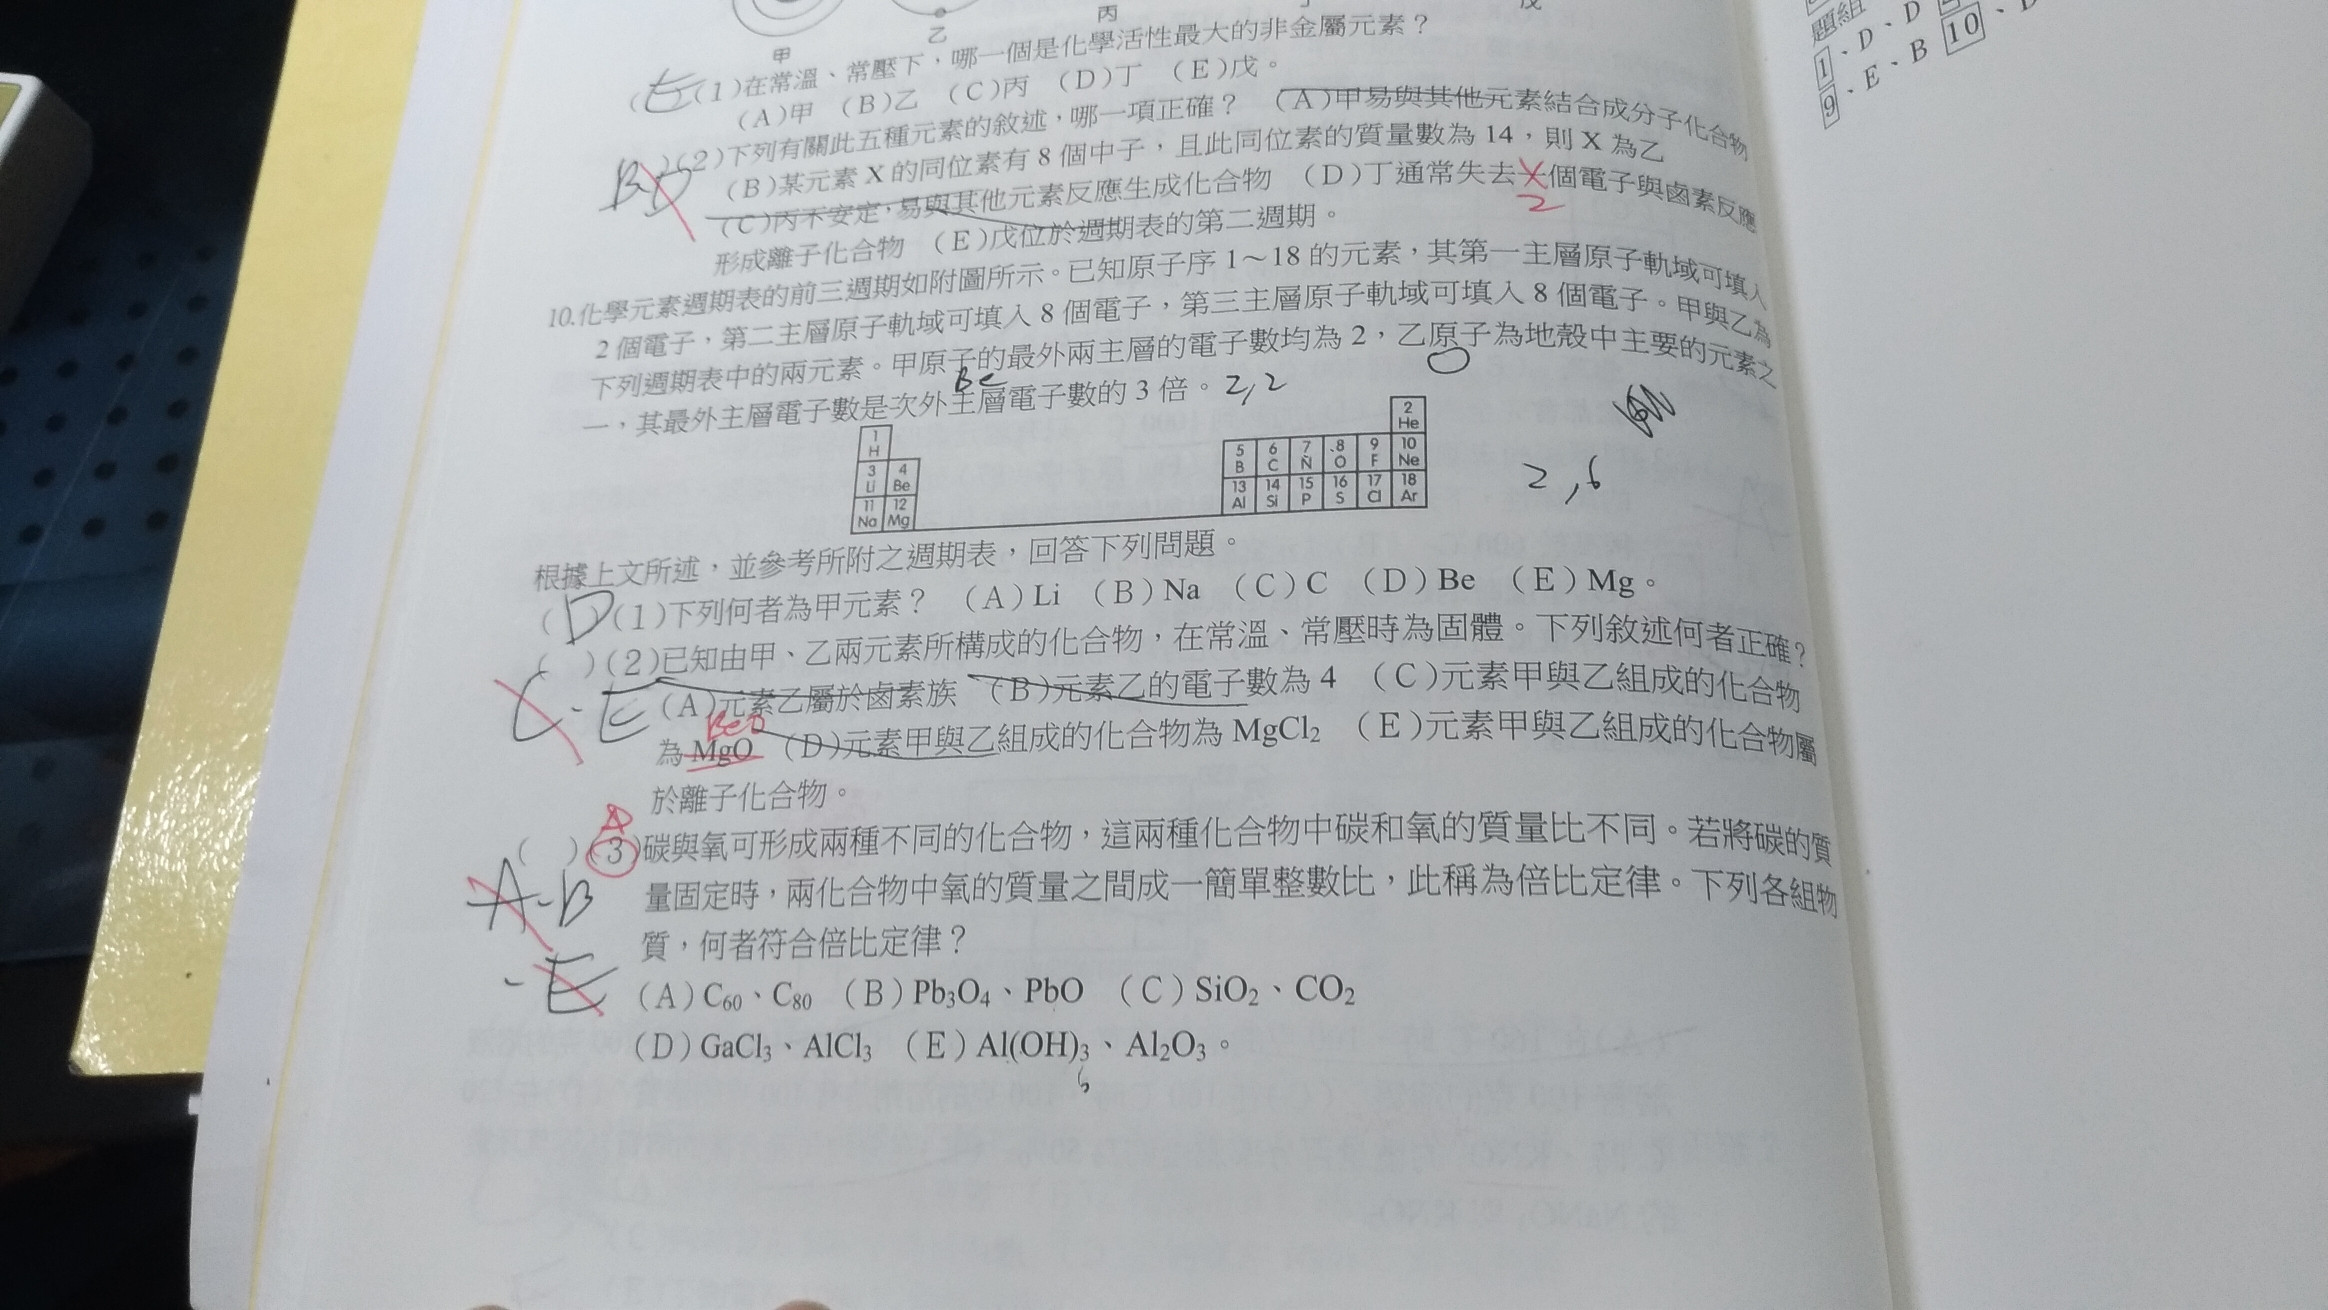 甲
乙
丙
(E)(1)在常溫、常壓下，哪一個是化學活性最大的非金屬元素？
(A)甲 (B)乙 (C)丙 (D)丁 (E)戊。
BD (2)下列有關此五種元素的敘述，哪一項正確？ (A)甲易與其他元素結合成分子化合物
(B)某元素 X 的同位素有 8 個中子，且此同位素的質量數為 14，則 X 為乙
(C)丙不安定，易與其他元素反應生成化合物 (D)丁通常失去一個電子與鹵素反應
2
形成離子化合物 (E)戊位於週期表的第二週期。
10.化學元素週期表的前三週期如附圖所示。已知原子序 1～18 的元素，其第一主層原子軌域可填入
2 個電子，第二主層原子軌域可填入 8 個電子，第三主層原子軌域可填入 8 個電子。甲與乙為
下列週期表中的兩元素。甲原子的最外兩主層的電子數均為 2，乙原子為地殼中主要的元素之
Be
O
一，其最外主層電子數是次外主層電子數的 3 倍。2,2
2 He
1 H
3 Li 4 Be 5 B 6 C 7 N 8 O 9 F 10 Ne
11 Na 12 Mg 13 Al 14 Si 15 P 16 S 17 Cl 18 Ar
2,6
根據上文所述，並參考所附之週期表，回答下列問題。
(D)(1)下列何者為甲元素？ (A)Li (B)Na (C)C (D)Be (E)Mg。
( )(2)已知由甲、乙兩元素所構成的化合物，在常溫、常壓時為固體。下列敘述何者正確？
C-E (A)元素乙屬於鹵素族 (B)元素乙的電子數為 4 (C)元素甲與乙組成的化合物
BeO
為 MgO (D)元素甲與乙組成的化合物為 MgCl₂ (E)元素甲與乙組成的化合物屬
於離子化合物。
( )(3)碳與氧可形成兩種不同的化合物，這兩種化合物中碳和氧的質量比不同。若將碳的質
A-B 量固定時，兩化合物中氧的質量之間成一簡單整數比，此稱為倍比定律。下列各組物
質，何者符合倍比定律？
-E (A)C₆₀、C₈₀ (B)Pb₃O₄、PbO (C)SiO₂、CO₂
(D)GaCl₃、AlCl₃ (E)Al(OH)₃、Al₂O₃。
6
題組
1、D、D
9、E、B 10、